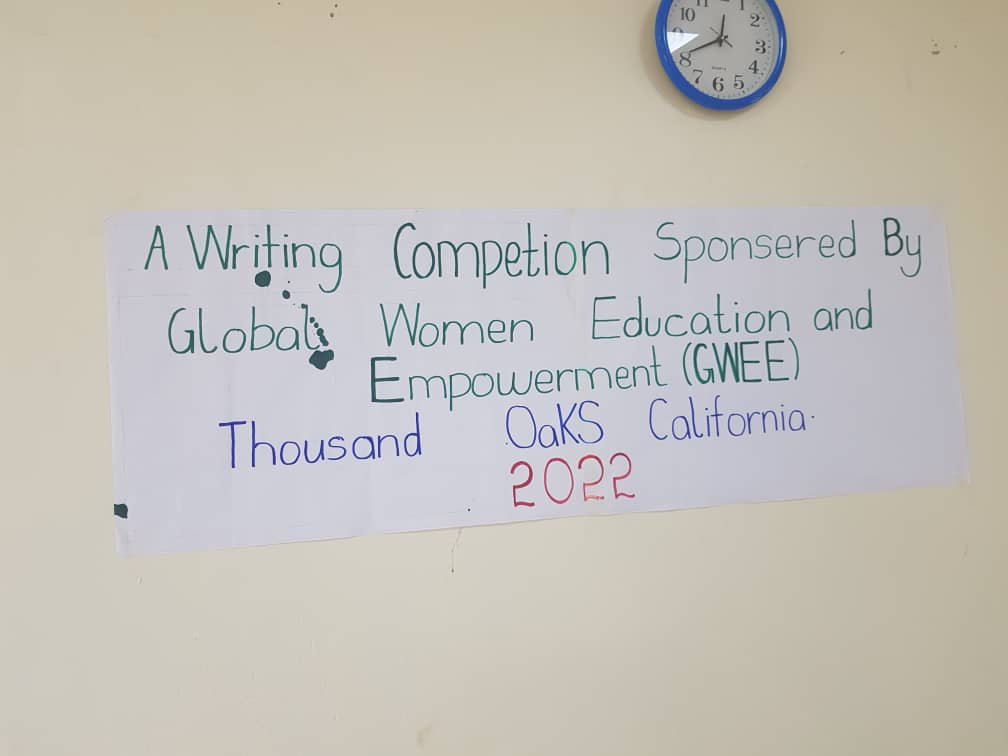 11 1
10 2
9 3
8 4
7 6 5
A Writing Competion Sponsered By
Global Women Education and
Empowerment (GWEE)
Thousand OaKS California.
2022